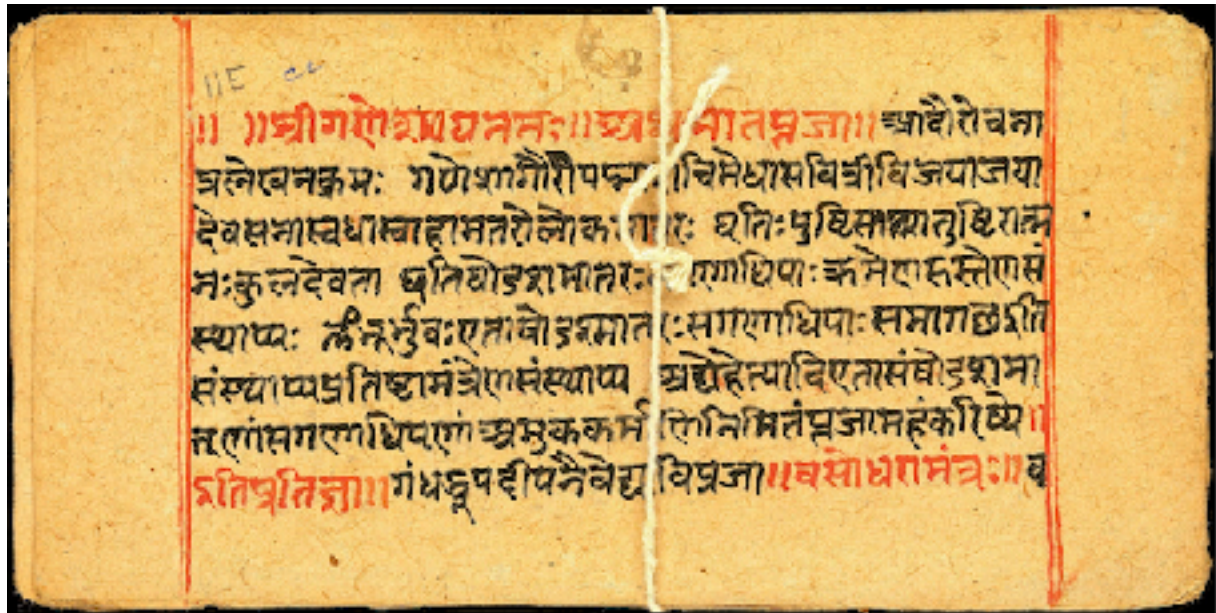 115
॥ ॥श्रीगणेशायनमः॥अथमातृपूजा॥आदौरोचना
त्रलेखनक्रमः गणेशागौरीपद्मा चिमेधासवित्रीविजयाजया
देवसेनास्वधास्वाहामातरोलोकमातरः धृतिःपुष्टिस्तथातुष्टिरात्म
नःकुलदेवता षोडशमातरः गणाधिपाः क्रमेण सं
स्थाप्यः भूर्भुवःएताषोडशमातरःसगणाधिपाः
संस्थाप्यप्रतिष्ठामंत्रेणसंस्थाप्य अद्येहेत्यादिएतासंषोडशमा
तृणांसगणाधिपणां अमुककर्म निमितंपूजामहंकरिष्ये॥
इतिप्रतिज्ञा॥॥गंधधूपदीपनैवेद्यादिपूजा॥॥वसोधरामंत्रः॥॥व